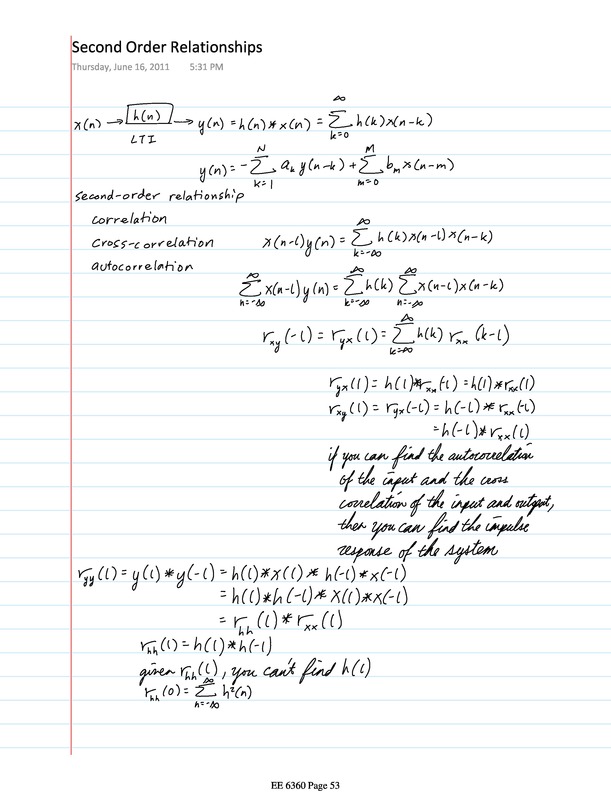 Second Order Relationships
Thursday, June 16, 2011 5:31 PM
x(n) → h(n) → y(n) = h(n) * x(n) = ∑_{k=0}^{∞} h(k) x(n-k)
LTI
y(n) = -∑_{k=1}^{N} a_k y(n-k) + ∑_{m=0}^{M} b_m x(n-m)
second-order relationship
correlation
cross-correlation x(n-l) y(n) = ∑_{k=-∞}^{∞} h(k) x(n-l) x(n-k)
autocorrelation
∑_{n=-∞}^{∞} x(n-l) y(n) = ∑_{k=-∞}^{∞} h(k) ∑_{n=-∞}^{∞} x(n-l) x(n-k)
r_xy(-l) = r_yx(l) = ∑_{k=-∞}^{∞} h(k) r_xx(k-l)
r_yx(l) = h(l) * r_xx(-l) = h(l) * r_xx(l)
r_xy(l) = r_yx(-l) = h(-l) * r_xx(-l)
= h(-l) * r_xx(l)
if you can find the autocorrelation
of the input and the cross
correlation of the input and output,
then you can find the impulse
response of the system
r_yy(l) = y(l) * y(-l) = h(l) * x(l) * h(-l) * x(-l)
= h(l) * h(-l) * x(l) * x(-l)
= r_hh(l) * r_xx(l)
r_hh(l) = h(l) * h(-l)
given r_hh(l), you can't find h(l)
r_hh(0) = ∑_{n=-∞}^{∞} h²(n)
EE 6360 Page 53